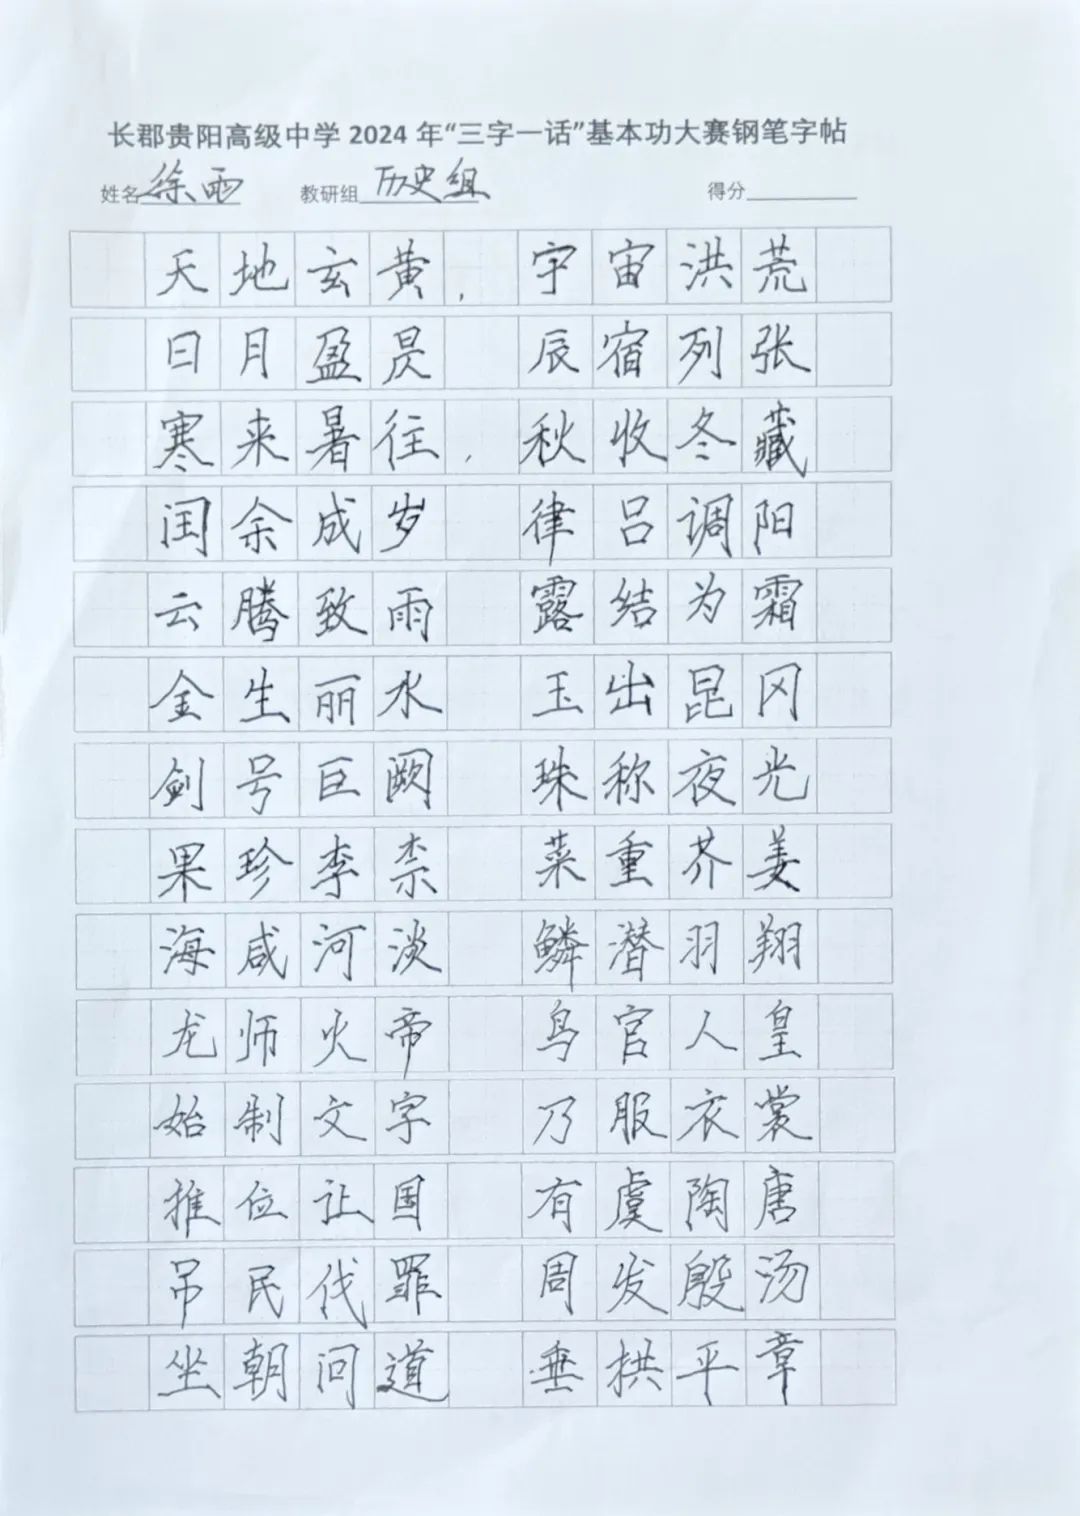 长郡贵阳高级中学 2024 年“三字一话”基本功大赛钢笔字帖
姓名 徐雨 教研组 历史组 得分
天地玄黄，宇宙洪荒
日月盈昃 辰宿列张
寒来暑往，秋收冬藏
闰余成岁 律吕调阳
云腾致雨 露结为霜
金生丽水 玉出昆冈
剑号巨阙 珠称夜光
果珍李柰 菜重芥姜
海咸河淡 鳞潜羽翔
龙师火帝 鸟官人皇
始制文字 乃服衣裳
推位让国 有虞陶唐
吊民伐罪 周发殷汤
坐朝问道 垂拱平章